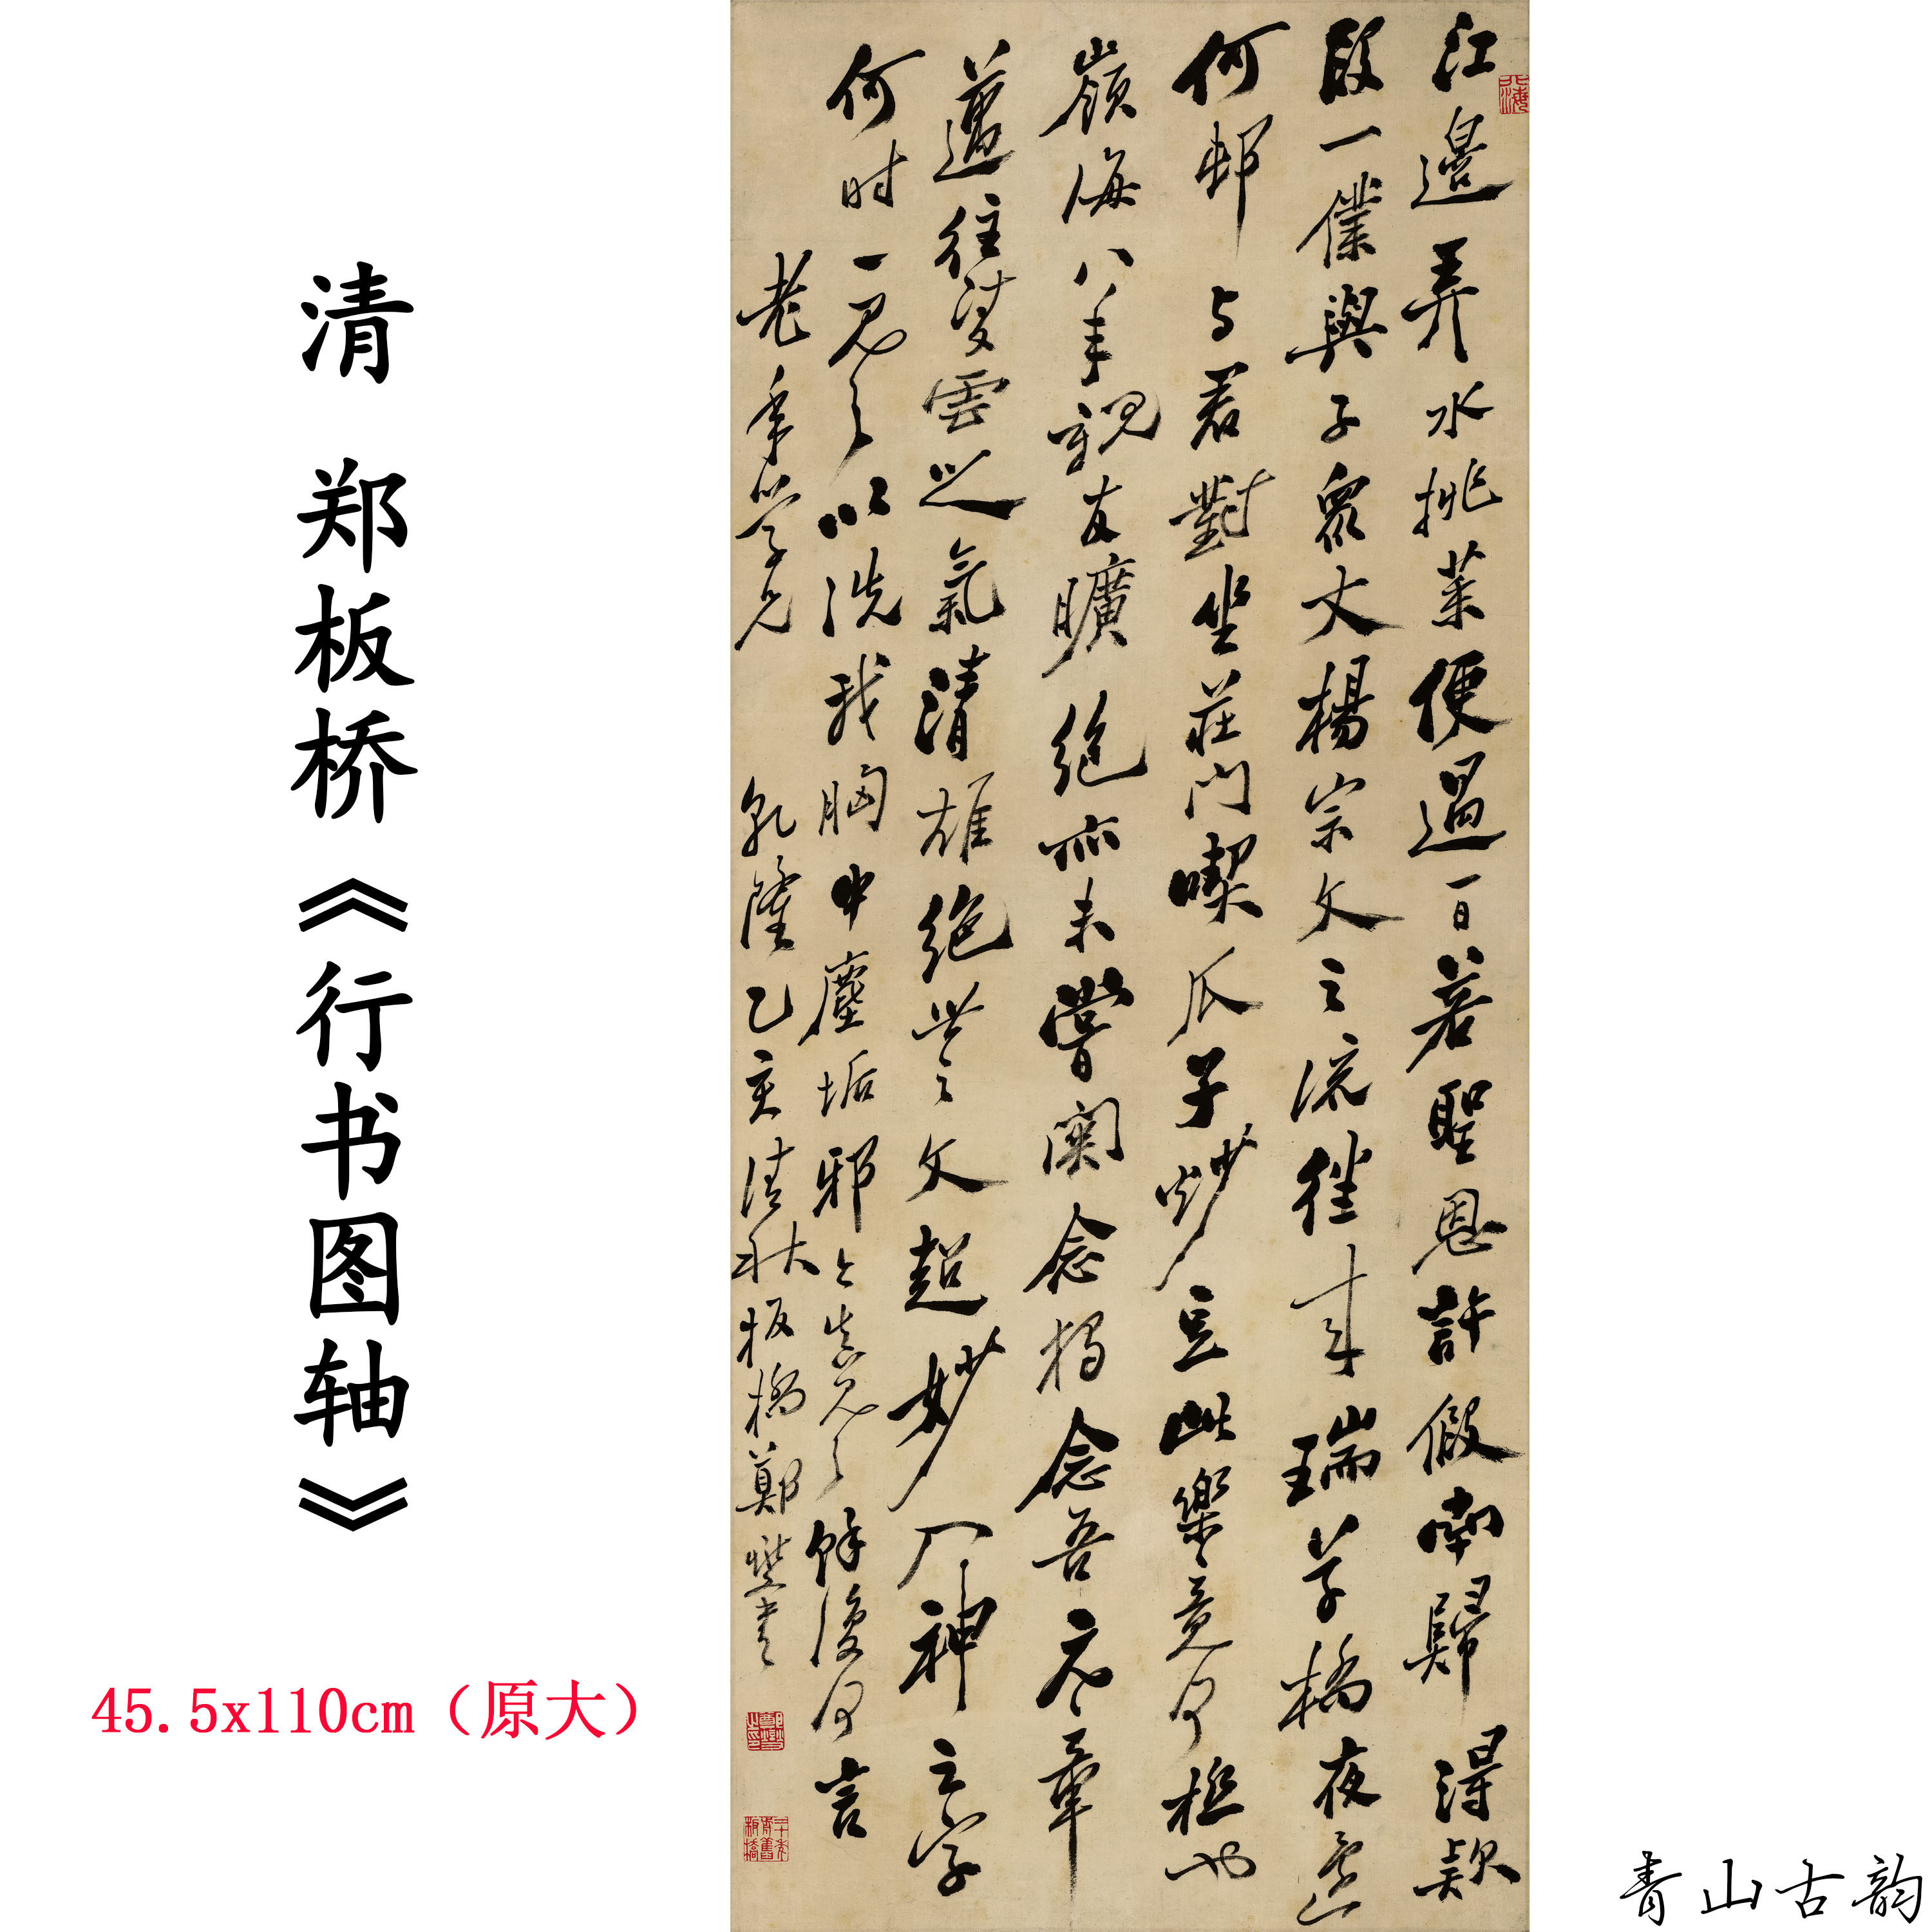 清 郑板桥《行书图轴》
45.5x110cm（原大）
江邊弄水挑菜便過一日若聖恩許假南歸得款
段一僕與子眾丈楊宗文之流往來瑞草橋夜還
何邨与君對坐莊門喫瓜子炒豆此樂竟何極也
嶺海八年親友曠絕亦未嘗關念獨念吾元章
邁往凌雲之氣清雄絕世之文超妙入神之字
何时一見之以洗我胸中塵垢邪今真見之餘復何言
老年學兄 乾隆乙亥清秋板橋鄭燮書
青山古韵